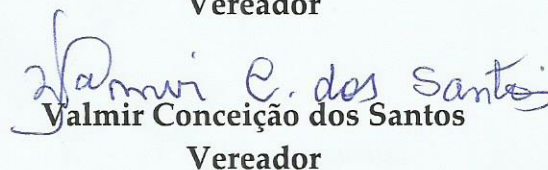 Vereador
Valmir C. dos Santos
Valmir Conceição dos Santos
Vereador